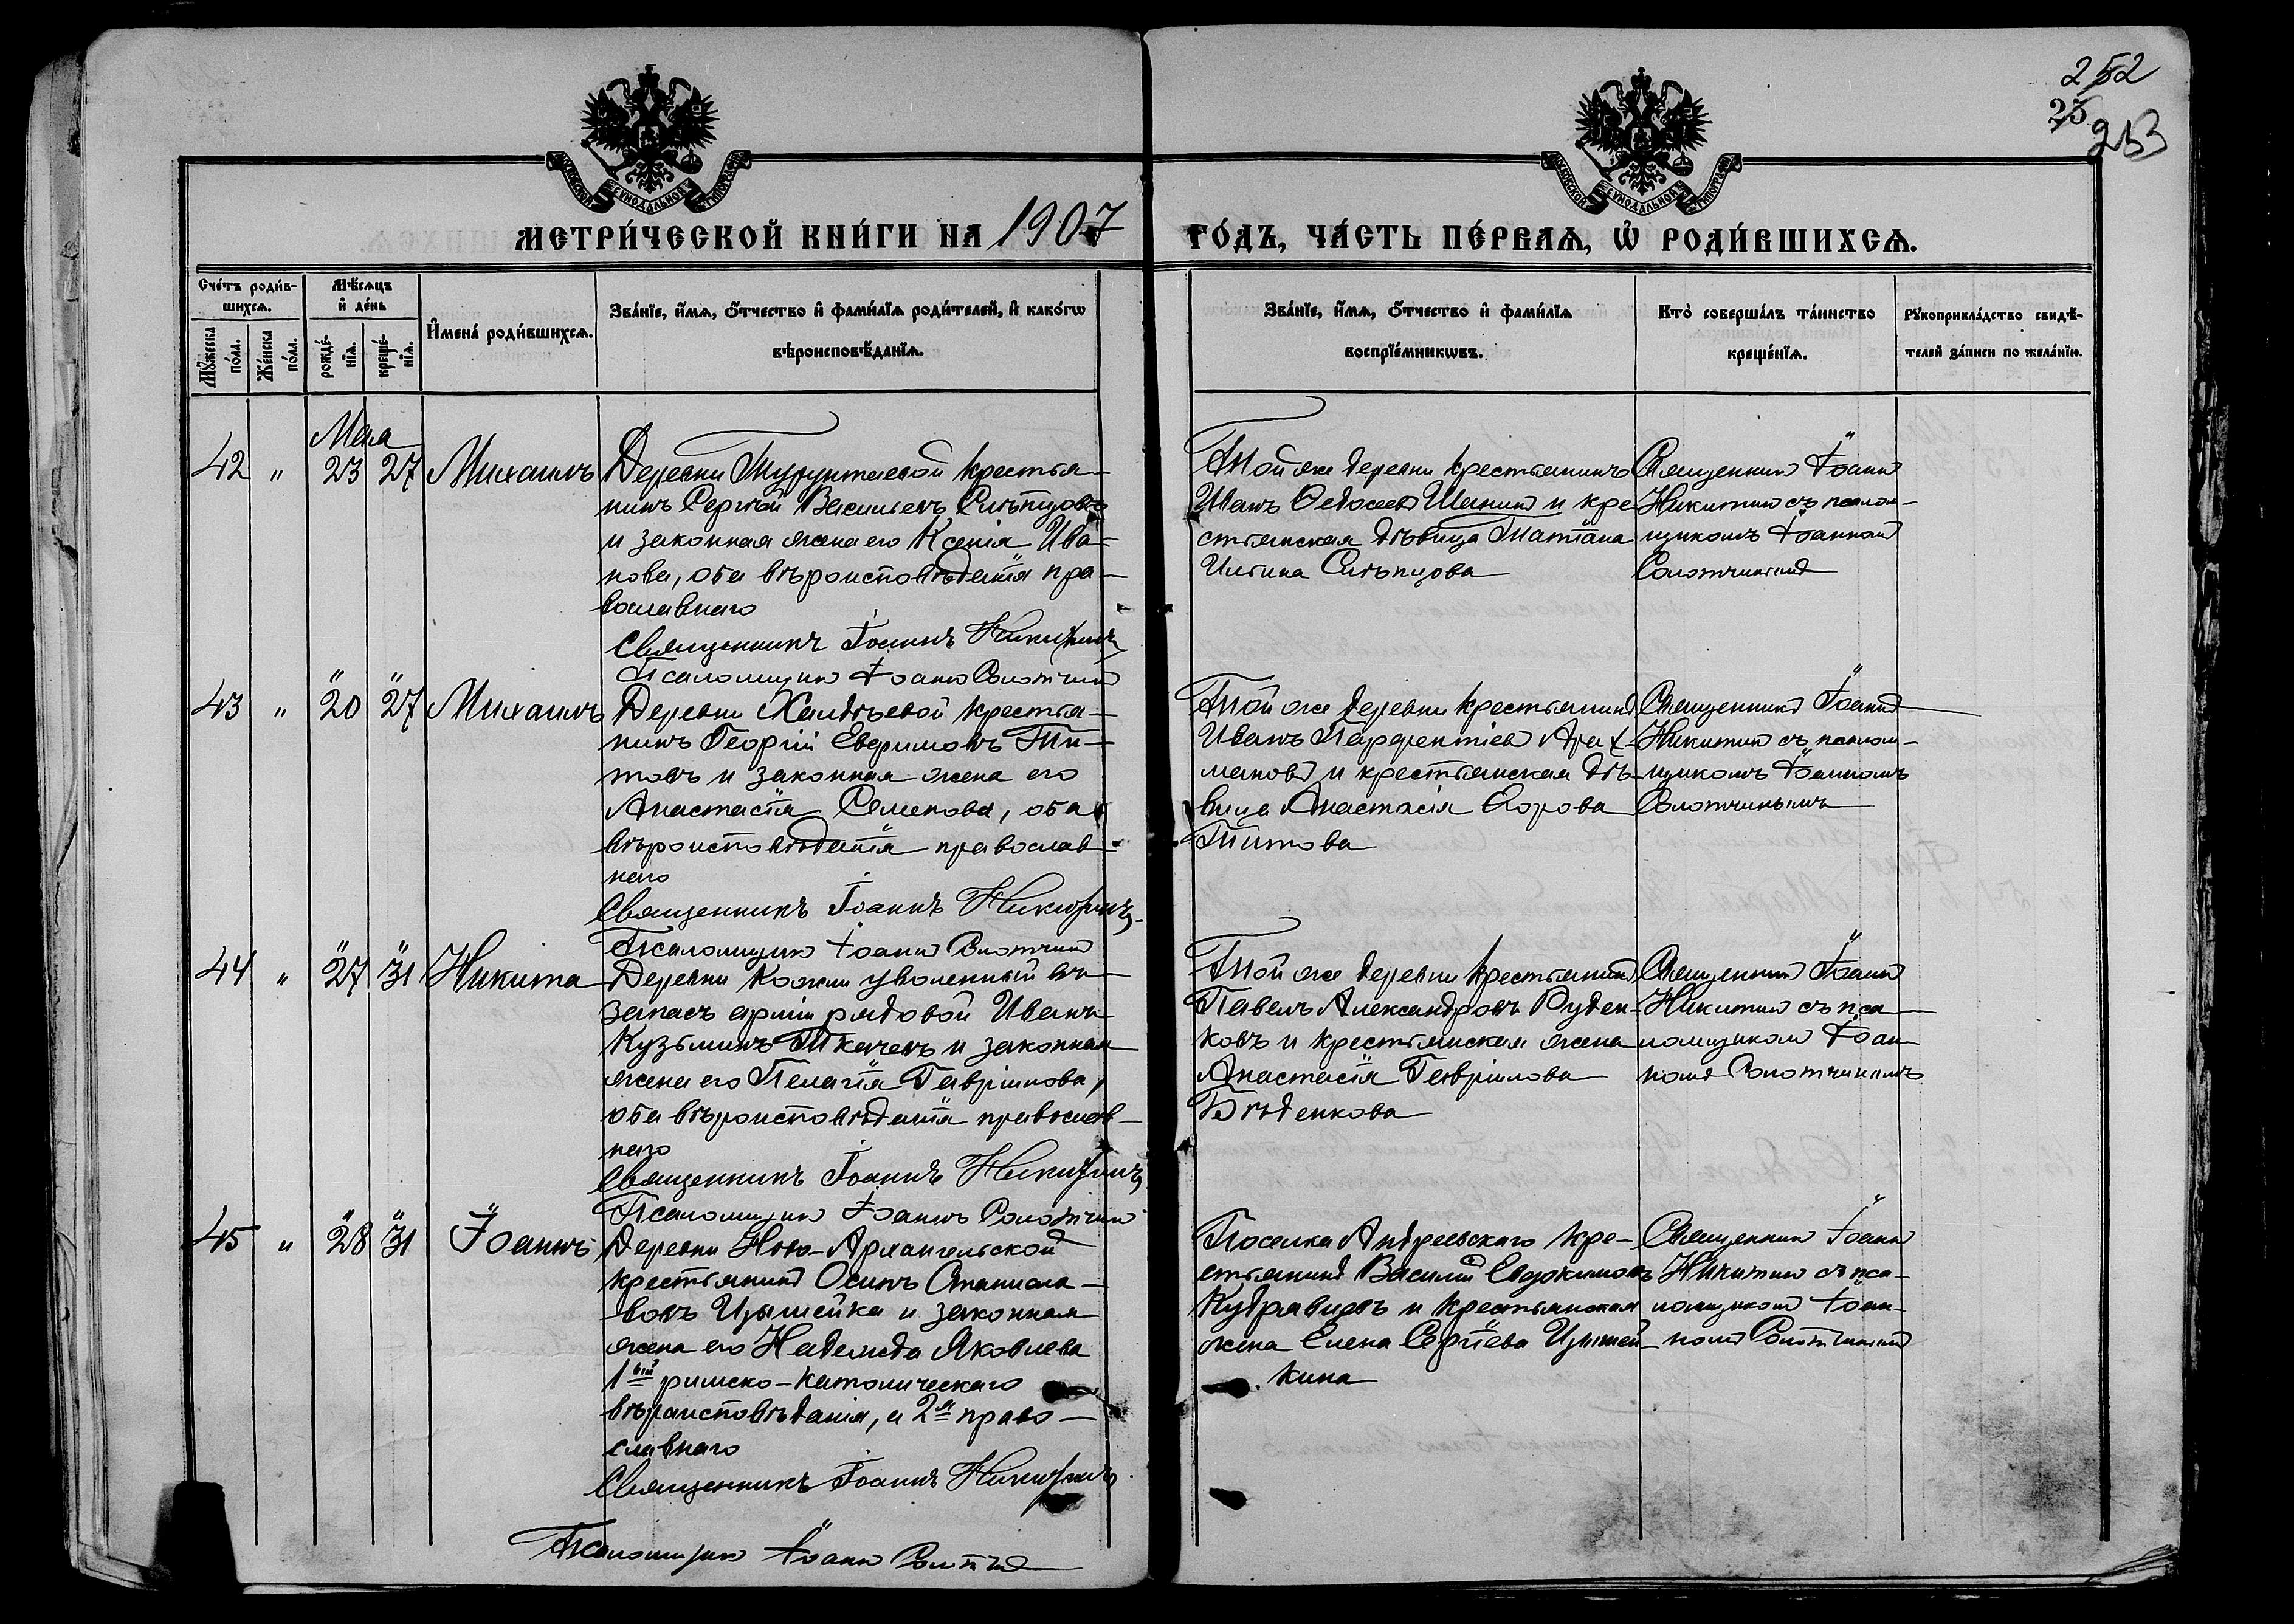 252
23
253
МЕТРИ́ЧЕСКОЙ КНИ́ГИ НА 1907 ГО́ДЪ, ЧА́СТЬ ПЕ́РВАѦ, Ѡ҆ РОДИ́ВШИХСѦ.
Сче́тъ роди́в-
шихсѧ.
Мꙋ́жеска
по́ла.
Же́нска
по́ла.
Мѣ́сѧцъ
и҆ де́нь
рожде́-
нїѧ.
креще́-
нїѧ.
И҆мена̀ роди́вшихсѧ.
Зва́нїе, и҆́мѧ, ѻ҆́тчество и҆ фами́лїѧ роди́телей, и҆ како́гѡ
вѣроисповѣ́данїѧ.
Зва́нїе, и҆́мѧ, ѻ҆́тчество и҆ фами́лїѧ
воспрїе́мникѡвъ.
Кто̀ соверша́лъ та́инство
креще́нїѧ.
Рꙋкоприкла́дство свидѣ́-
телей за́писи по жела́нїю.
Мая
42 " 23 27 Михаилъ
Деревни Турунтаевой крестья-
нинъ Сергѣй Васильевъ Слѣпцовъ
и законная жена его Ксенія Ива-
нова, оба вѣроисповѣданія пра-
вославнаго
Священникъ Іоаннъ Никитинъ
Псаломщикъ Іоаннъ Солотчинъ
Той же деревни крестьянинъ
Иванъ Ѳедосеевъ Шанинъ и кре-
стьянская дѣвица Татіана
Ильина Слѣпцова
Священникъ Іоаннъ
Никитинъ съ псалом-
щикомъ Іоанномъ
Солотчинымъ
43 " " 20 " 27 Михаилъ
Деревни Халдѣевой крестья-
нинъ Георгій Евфимовъ Ти-
товъ и законная жена его
Анастасія Семенова, оба
вѣроисповѣданія православ-
наго
Священникъ Іоаннъ Никитинъ
Псаломщикъ Іоаннъ Солотчинъ
Той же деревни крестьянинъ
Иванъ Парфентіевъ Арах-
мановъ и крестьянская дѣ-
вица Анастасія Егорова
Титова
Священникъ Іоаннъ
Никитинъ съ псалом-
щикомъ Іоанномъ
Солотчинымъ
44 " " 27 " 31 Никита
Деревни уволенный въ
запасъ арміи рядовой Иванъ
Кузьминъ Ткачевъ и законная
жена его Пелагія Гавріилова,
оба вѣроисповѣданія православ-
наго
Священникъ Іоаннъ Никитинъ
Псаломщикъ Іоаннъ Солотчинъ
Той же деревни крестьянинъ
Павелъ Александровъ Руден-
ковъ и крестьянская жена
Анастасія Гавріилова
Бѣденкова
Священникъ Іоаннъ
Никитинъ съ пса-
ломщикомъ Іоан-
номъ Солотчинымъ
45 " " 28 " 31 Іоаннъ
Деревни Ново-Архангельской
крестьянинъ Осипъ Станисла-
вовъ Цымейка и законная
жена его Надежда Яковлева
1ый римско-католическаго
вѣроисповѣданія, а 2я право-
славнаго
Священникъ Іоаннъ Никитинъ
Псаломщикъ Іоаннъ Солотчинъ
Поселка Андреевскаго кре-
стьянинъ Василій Евдокимовъ
Кудрявцевъ и крестьянская
жена Елена Сергіева Цымей-
кина
Священникъ Іоаннъ
Никитинъ съ пса-
ломщикомъ Іоан-
номъ Солотчинымъ